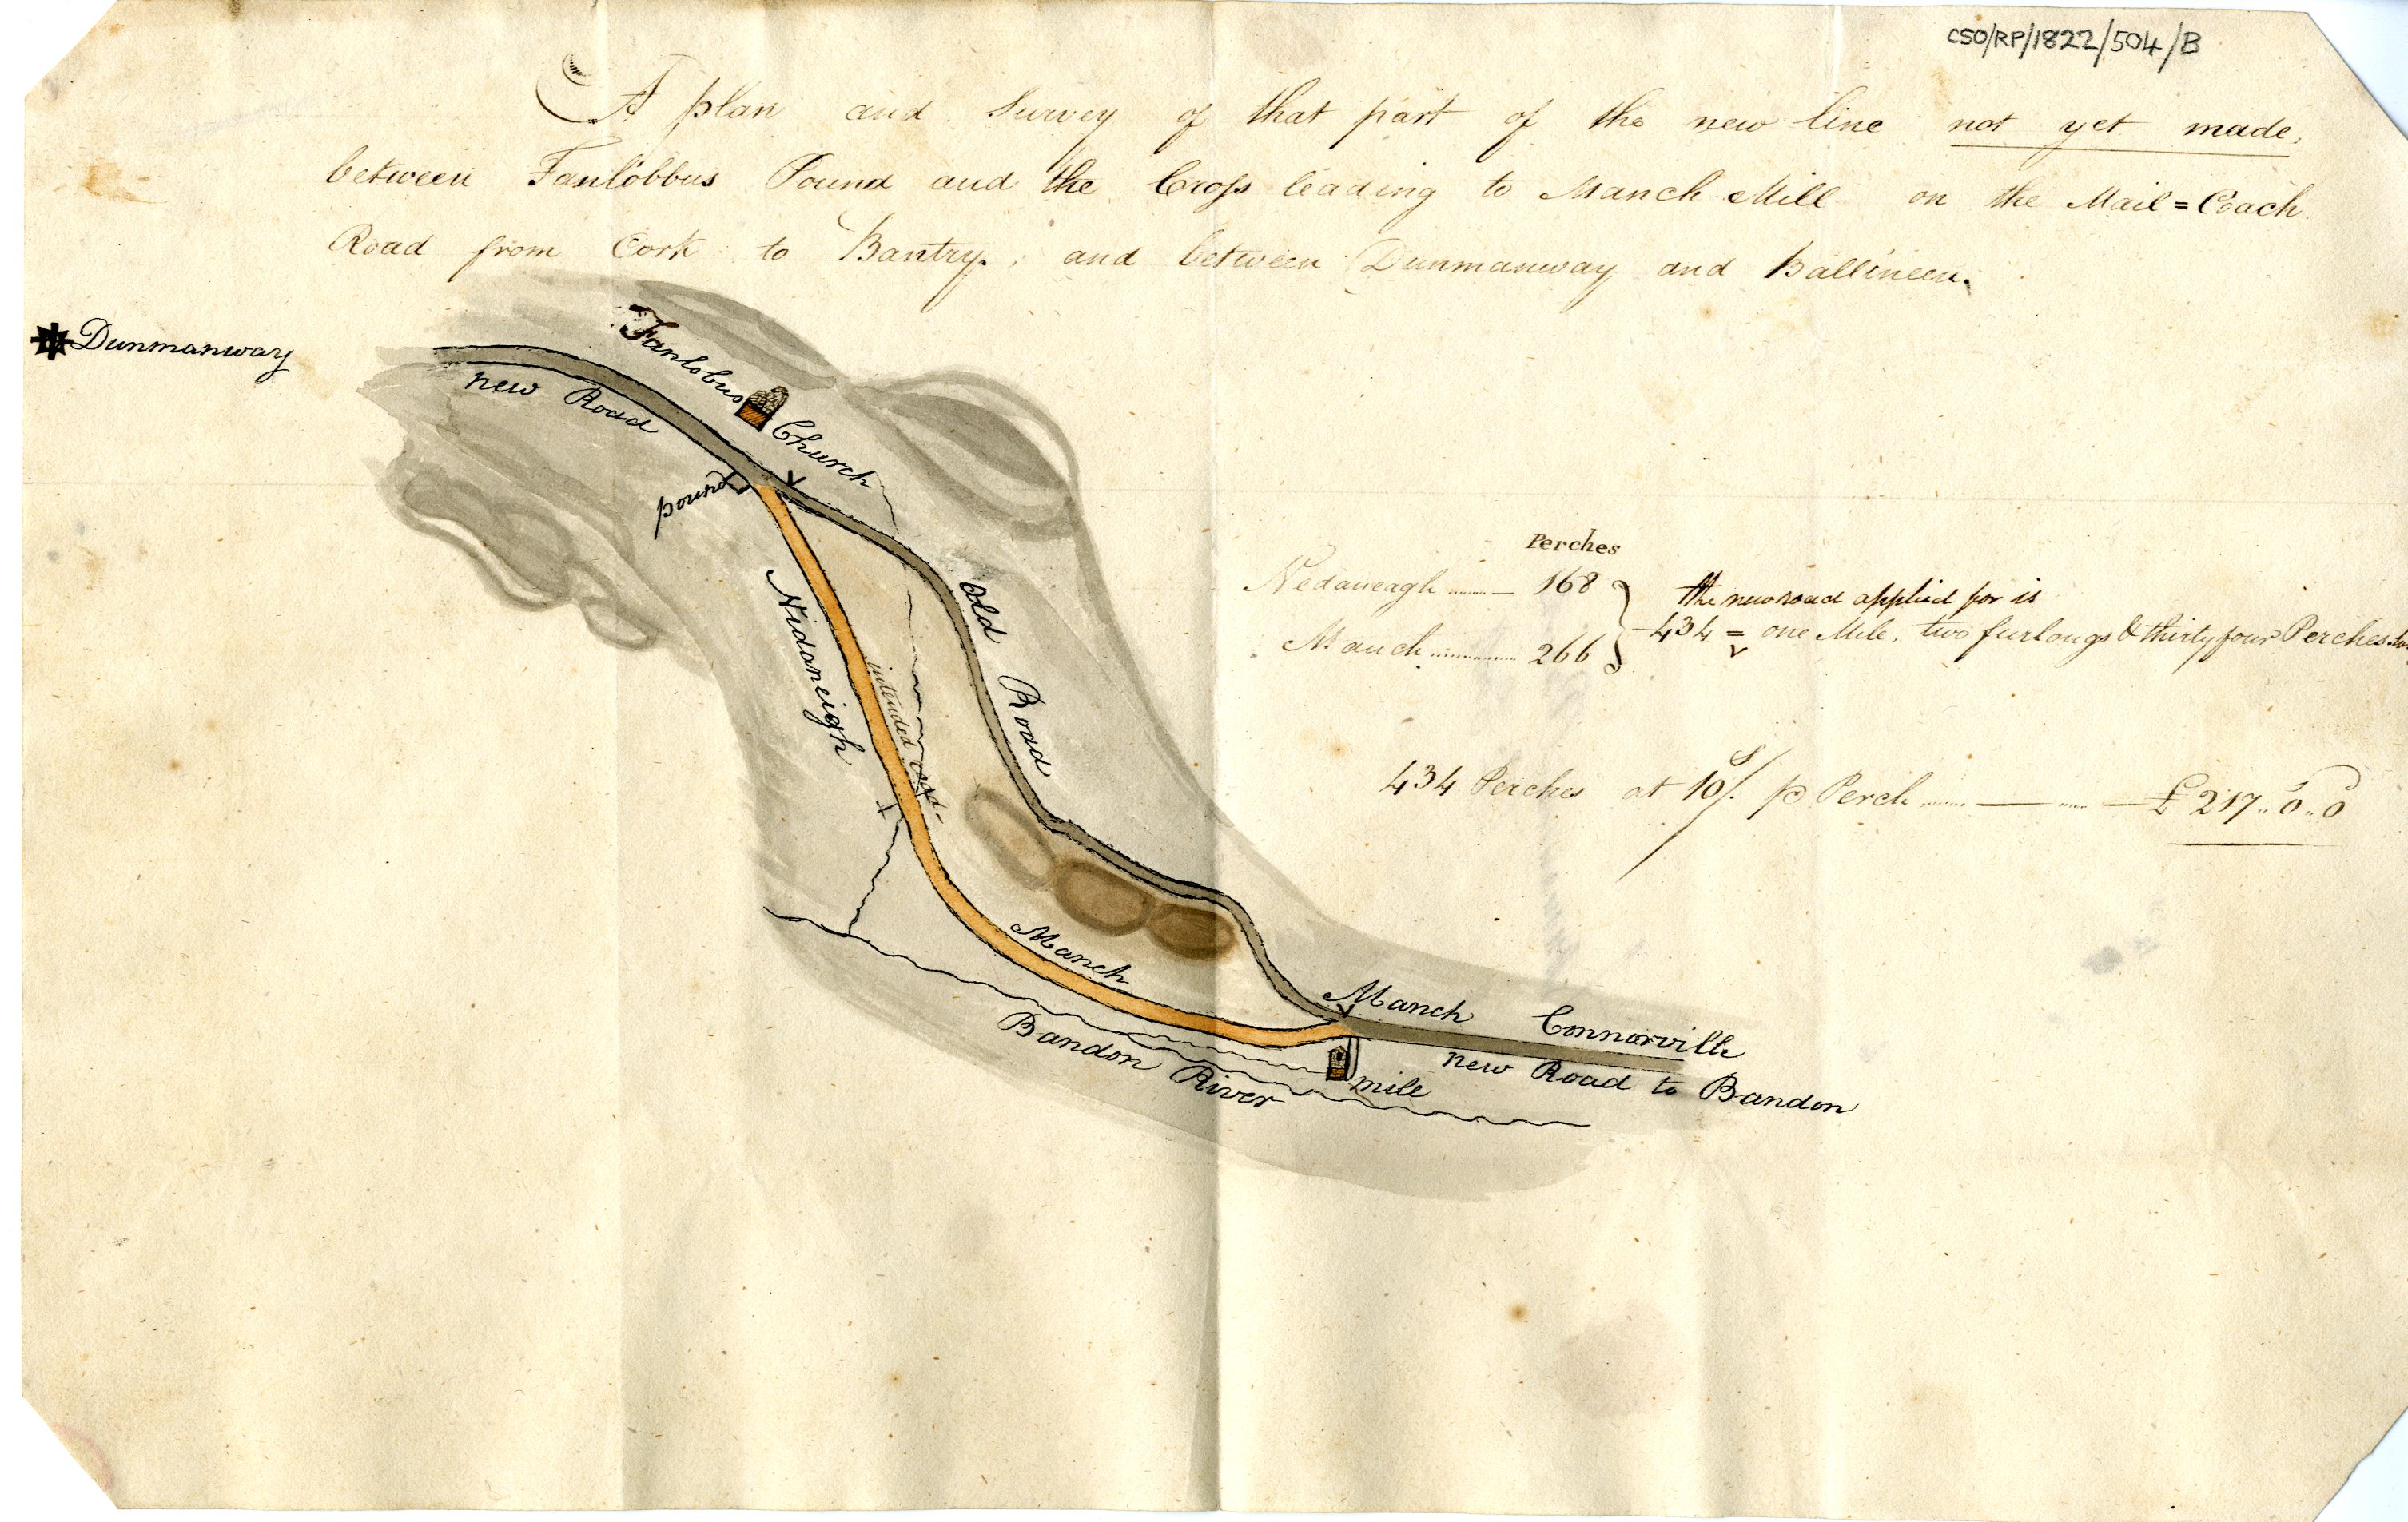 CSO/RP/1822/504/B
A plan and Survey of that part of the new line not yet made,
between Fanlobbus Pound and the Cross leading to Manch Mill on the Mail=Coach
Road from Cork to Bantry, and between Dunmanway and Ballineen.
Dunmanway
Fanlobus Church
new Road
pound
Old Road
Nidaneigh
intended road
Manch
Bandon River
Manch Connorville
mile
new Road to Bandon
Perches
Nedaneagh ...... 168
Manch ............ 266
the new road applied for is
434 = one Mile, two furlongs & thirty four Perches
434 Perches at 10S/. p Perch ...... £217..0..0